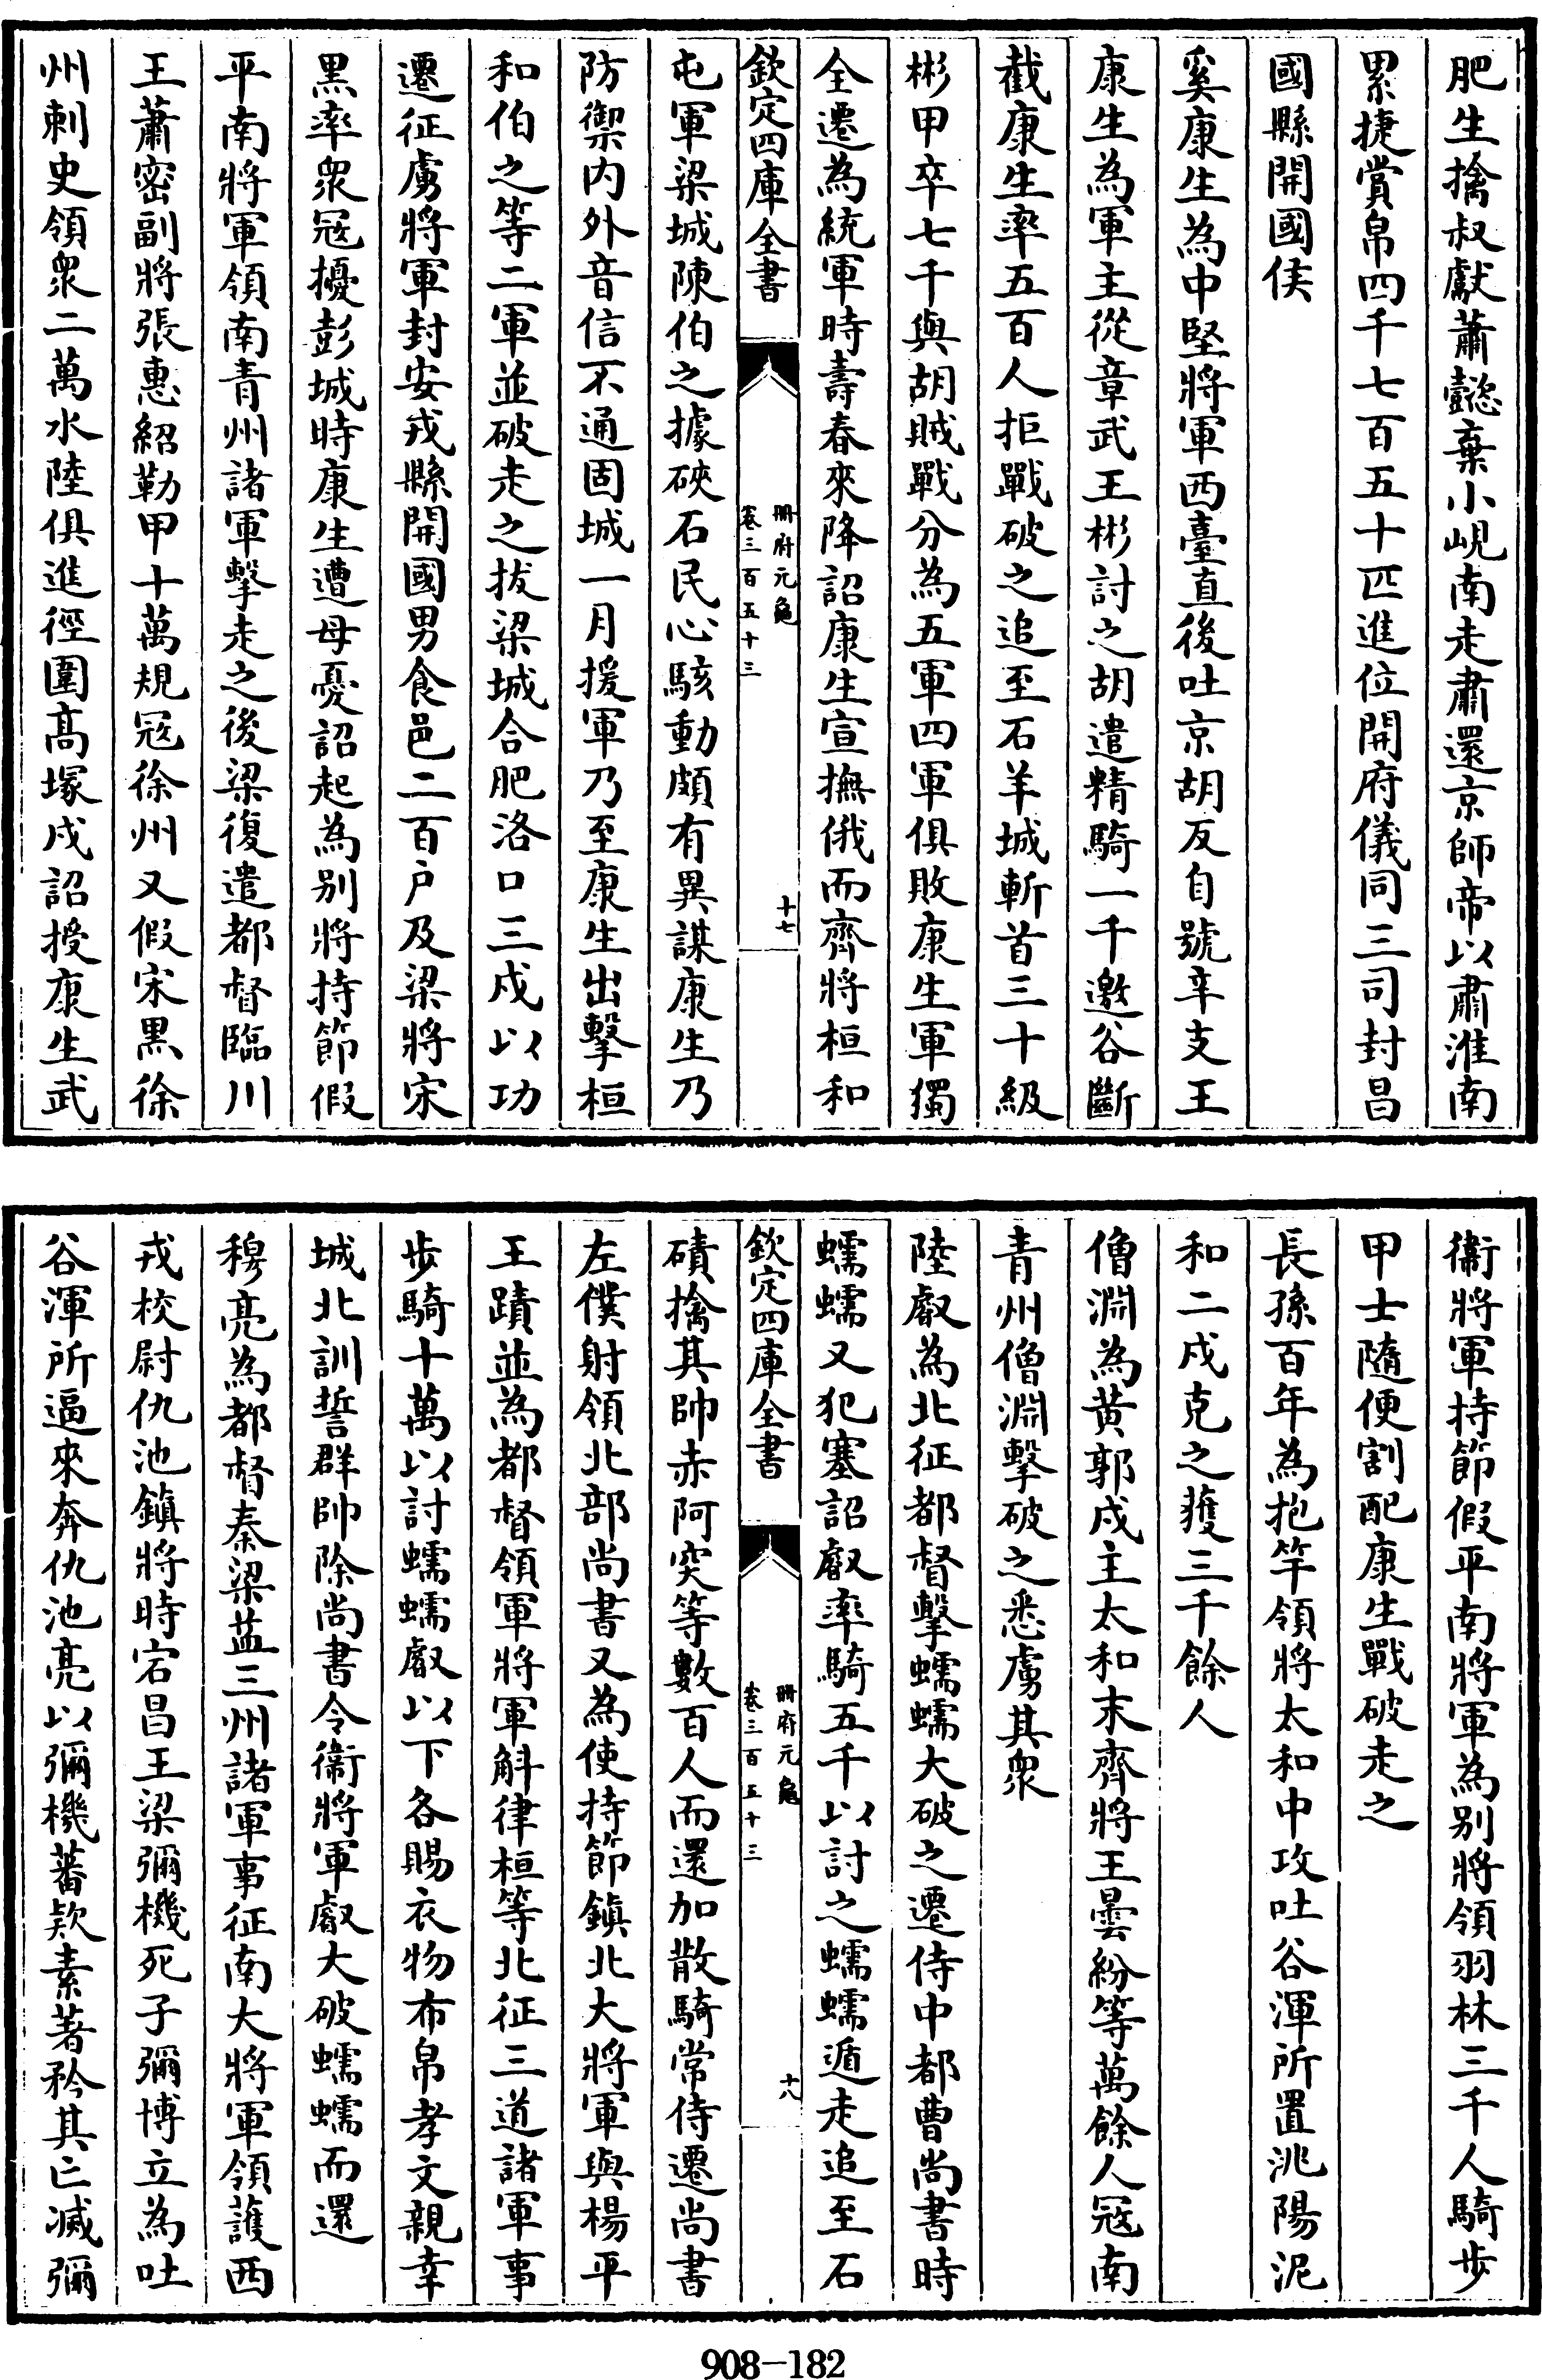 肥生擒叔獻蕭懿棄小峴南走肅還京師帝以肅淮南
累捷賞帛四千七百五十匹進位開府儀同三司封昌
國縣開國侯
奚康生為中堅將軍西臺直後吐京胡反自號辛支王
康生為軍主從章武王彬討之胡遣精騎一千邀谷斷
截康生率五百人拒戰破之追至石羊城斬首三十級
彬甲卒七千與胡賊戰分為五軍四軍俱敗康生軍獨
全遷為統軍時壽春來降詔康生宣撫俄而齊將桓和
欽定四庫全書
冊府元龜
卷三百五十三
十七
屯軍梁城陳伯之據硤石民心駭動頗有異謀康生乃
防禦内外音信不通固城一月援軍乃至康生出擊桓
和伯之等二軍並破走之拔梁城合肥洛口三戍以功
遷征虜將軍封安戎縣開國男食邑二百户及梁將宋
黑率衆冦擾彭城時康生遭母憂詔起為别將持節假
平南將軍領南青州諸軍擊走之後梁復遣都督臨川
王蕭密副將張惠紹勒甲十萬規冦徐州又假宋黒徐
州刺史領衆二萬水陸俱進徑圍髙塚戍詔授康生武
衞將軍持節假平南將軍為别將領羽林三千人騎步
甲士隨便割配康生戰破走之
長孫百年為抱竿領將太和中攻吐谷渾所置洮陽泥
和二戍克之獲三千餘人
僧淵為黄郭戍主太和末齊將王曇紛等萬餘人冦南
青州僧淵擊破之悉虜其衆
陸叡為北征都督擊蠕蠕大破之遷侍中都曹尚書時
蠕蠕又犯塞詔叡率騎五千以討之蠕蠕遁走追至石
欽定四庫全書
冊府元龜
卷三百五十三
十八
磧擒其帥赤阿突等數百人而還加散騎常侍遷尚書
左僕射領北部尚書又為使持節鎮北大將軍與楊平
王蹟並為都督領軍將軍斛律桓等北征三道諸軍事
步騎十萬以討蠕蠕叡以下各賜衣物布帛孝文親幸
城北訓誓群帥除尚書令衞將軍叡大破蠕蠕而還
穆亮為都督秦梁益三州諸軍事征南大將軍領護西
戎校尉仇池鎮將時宕昌王梁彌機死子彌博立為吐
谷渾所逼來奔仇池亮以彌機蕃款素著矜其亡滅彌
908-182